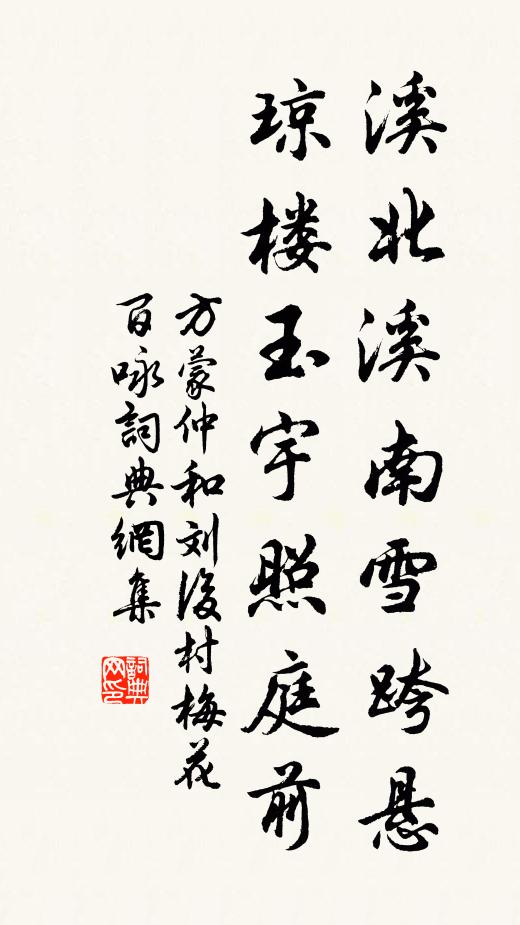 溪北溪南雪跨悬
琼楼玉宇照庭前
方蒙仲和刘後村梅花
百咏詞典網集
詞典网印